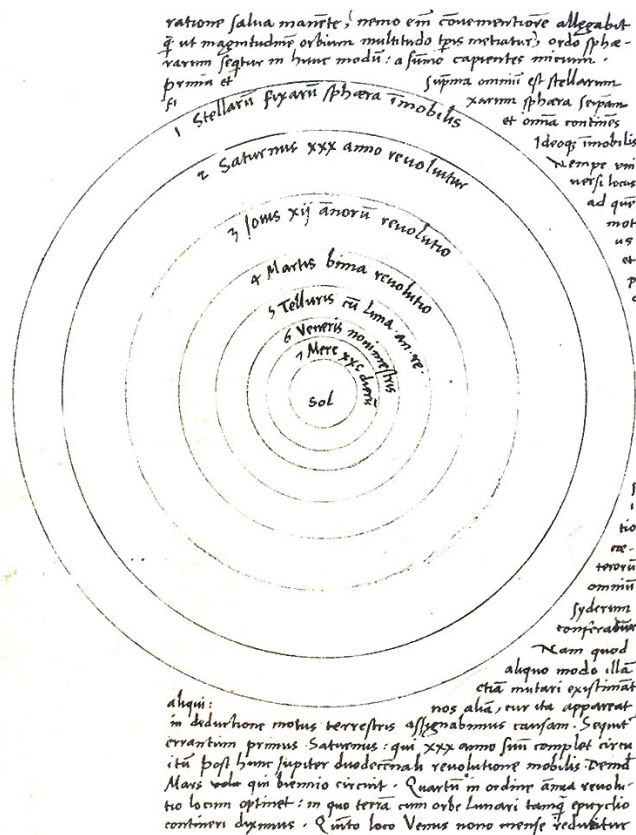 ratione salva manẽte, nemo em̃ cõvenientiorẽ allegabit
q̃ ut magnitudinẽ orbium multitudo tp̃is metiatur, ordo sphæ-
rarum seq̃tur in hunc modũ: a sum̃o capientes initium.
prima et suprema omniũ est stellarum
fi xarum sphæra seip̃am
et omnia continẽs
Ideoqȝ ĩmobilis
Nempe uni
versi locus
ad quẽ
mot
us
et
1 Stellarũ fixarũ sphæra ĩmobilis
2 Saturnus xxx anno revolvitur
3 Jovis xij ãnorũ revolutio
4 Martis bima revolutio
5 Telluris cũ Luna an. re.
6 Veneris nonimestris
7 Merc xxc dierũ
Sol
tio
cæ-
terorũ
omniũ
syderum
conferatur
Nam quod
aliquo modo illã
etiã mutari existimãt
aliqui: nos aliã, cur ita appareat
in deductione motus terrestris assignabimus causam. Sequit
errantium primus Saturnus: qui xxx anno suũ complet circu
itũ post hunc Jupiter duodecennali revolutione mobilis Deind
Mars qui biennio circuit. Quartũ in ordine ãnua revolu-
tio locum optinet: in quo terrã cum orbe Lunari tamq̃ epicyclio
contineri diximus. Quinto loco Venus nono mense reducitur